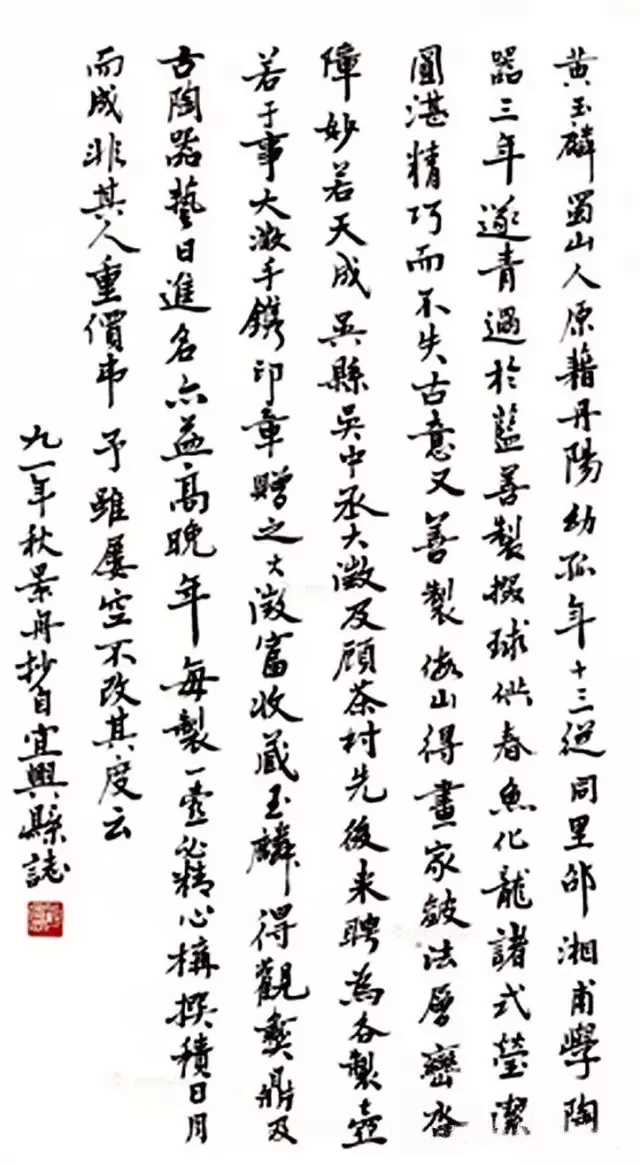 黄玉麟蜀山人原籍丹陽幼孤年十三從同里邵湘甫學陶
器三年遂青過於藍善製掇球供春魚化龍諸式瑩潔
圓湛精巧而不失古意又善製假山得畫家皴法層巒沓
障妙若天成吳縣吳中丞大澂及顧茶村先後來聘為各製壺
若于事大澂手鐫印章贈之大澂富收藏玉麟得觀彝鼎及
古陶器藝日進名亦益高晚年每製一壺必精心構撰積日月
而成非其人重價弗予雖屢空不改其度云
九一年秋景舟抄自宜興縣誌